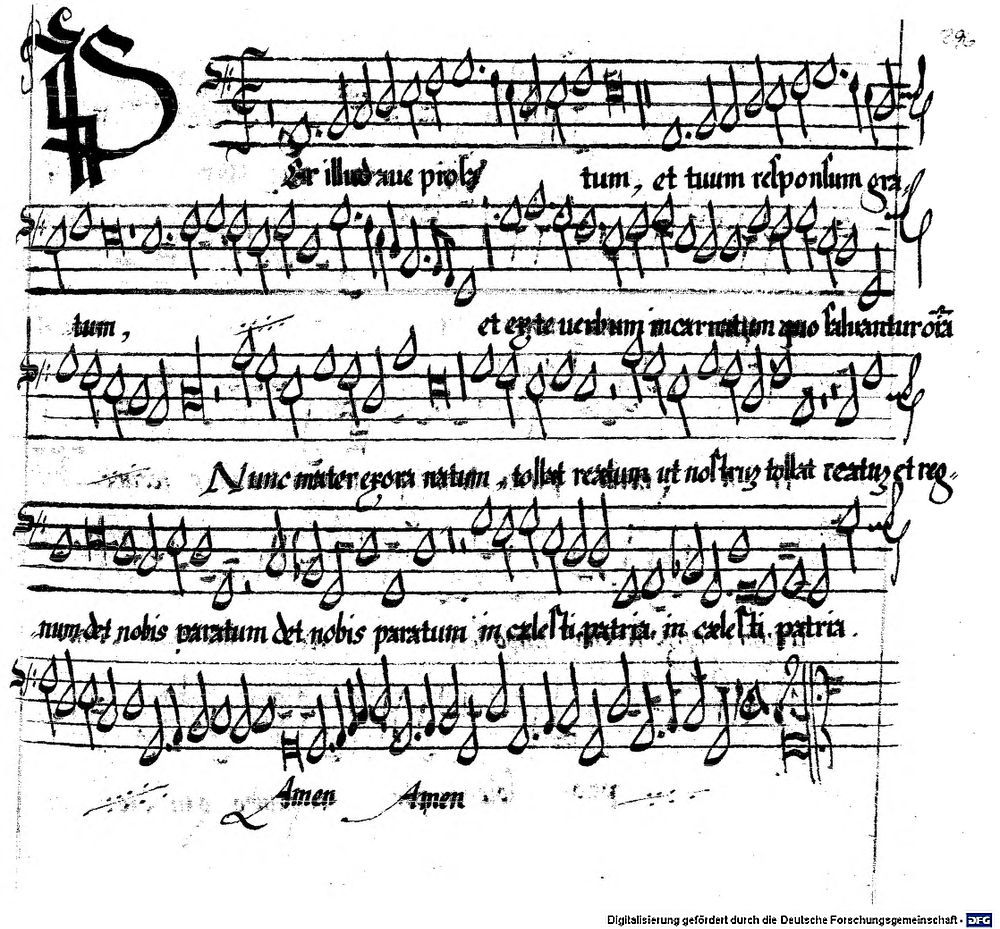 296
Per illud aue prola tum, et tuum responsum gra
tum, et ex te uerbum incarnatum quo saluantur oīa
Nunc mater exora natum, tollat reatum ut nostrum tollat reatum et reg-
num det nobis paratum det nobis paratum in cælesti patria. in cælesti patria.
Amen Amen
Digitalisierung gefördert durch die Deutsche Forschungsgemeinschaft - DFG